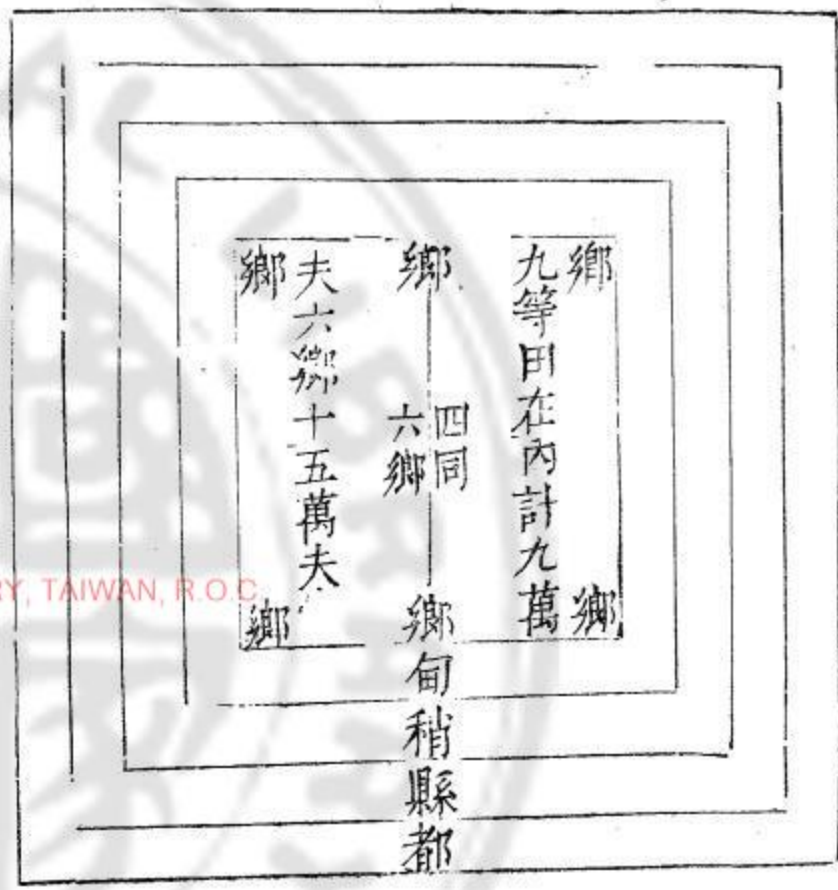 鄉
九等田在內計九萬
鄉
鄉
四同
六鄉
鄉甸稍縣都
鄉
夫六鄉十五萬夫
鄉
RY, TAIWAN, R.O.C.